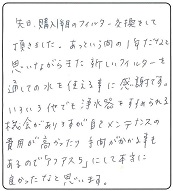 先日、購入4個目のフィルター交換をして
頂きました。あっという間の1年だなぁと
思いながらまた新しいフィルターを
通しての水を使える事に感謝です。
いろいろ他でも浄水器をすすめられる
機会がありますが自己メンテナンスの
費用が高かったり手間がかかる事も
あるので「クリアス5」にして本当に
良かったなと思います。